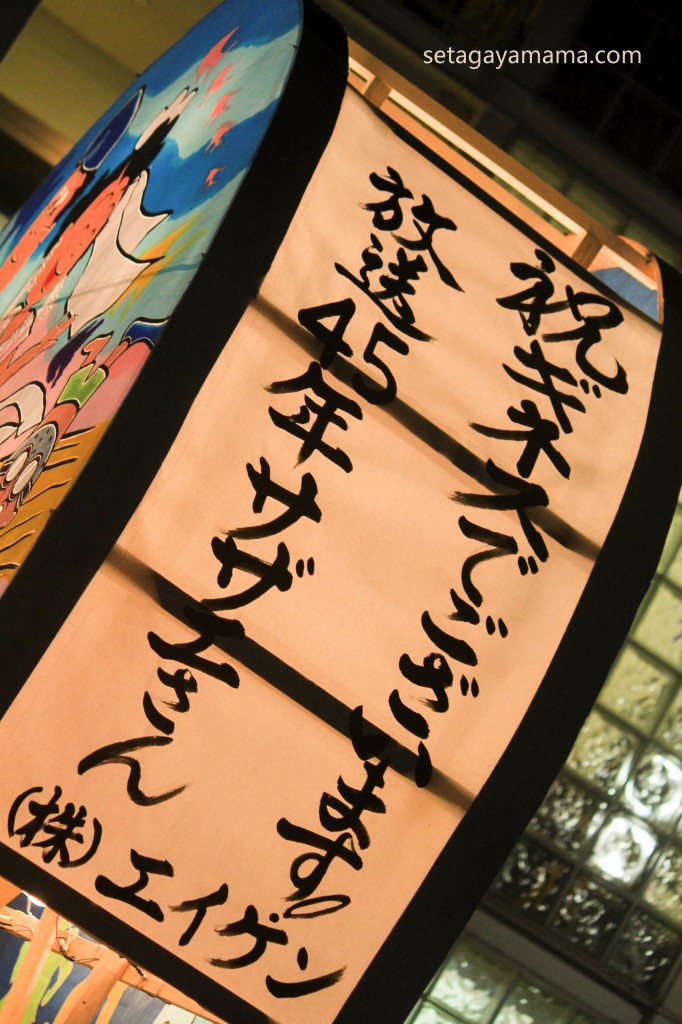 setagayamama.com
祝ギネスでございます。
放送45年サザエさん
(株)エイゲン